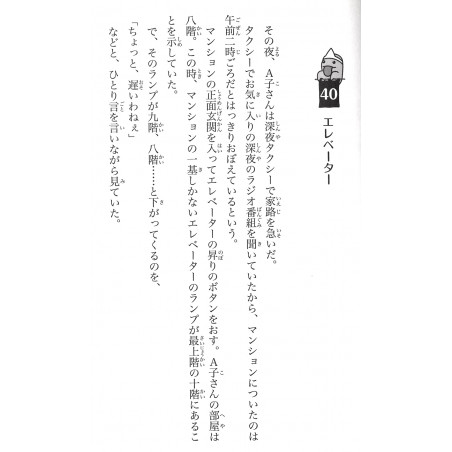 40
エレベーター
その夜、A子さんは深夜タクシーで家路を急いだ。
タクシーでお気に入りの深夜のラジオ番組を聞いていたから、マンションについたのは
午前二時ごろだとはっきりおぼえているという。
マンションの正面玄関を入ってエレベーターの昇りのボタンをおす。A子さんの部屋は
八階。この時、マンションの一基しかないエレベーターのランプが最上階の十階にあるこ
とを示していた。
で、そのランプが九階、八階……と下がってくるのを、
「ちょっと、遅いわねぇ」
などと、ひとり言を言いながら見ていた。